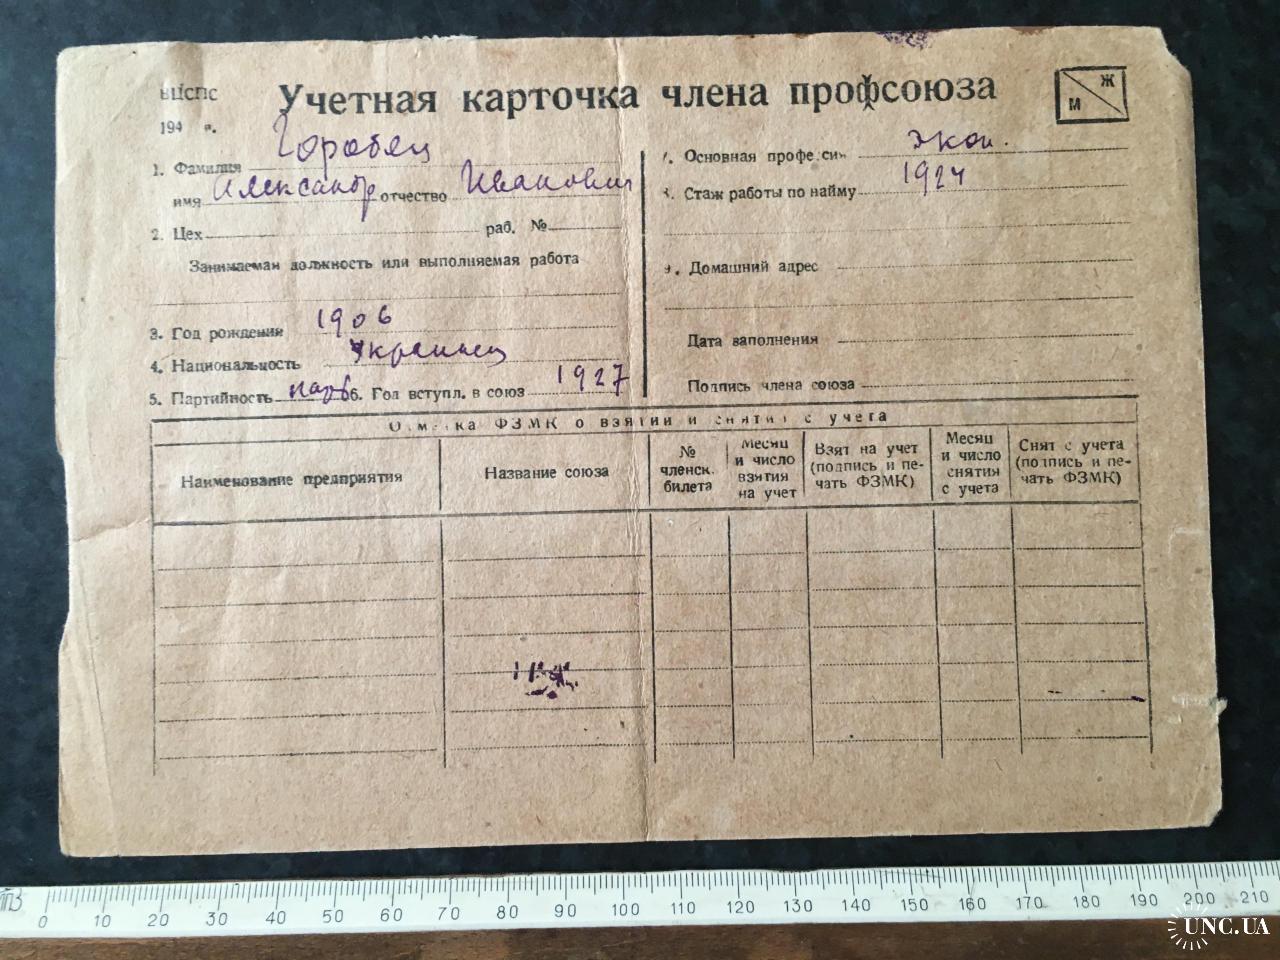 ВЦСПС
Учетная карточка члена профсоюза
194 г.
Ж
М
1. Фамилия Горобец
имя Александр отчество Иванович
2. Цех раб. №
Занимаемая должность или выполняемая работа
3. Год рождения 1906
4. Национальность Украинец
5. Партийность парт 6. Год вступл. в союз 1927
7. Основная профессия экон.
8. Стаж работы по найму 1924
9. Домашний адрес
Дата заполнения
Подпись члена союза
Отметка ФЗМК о взятии и снятии с учета
Наименование предприятия
Название союза
№
членск.
билета
Месяц
и число
взятия
на учет
Взят на учет
(подпись и пе-
чать ФЗМК)
Месяц
и число
снятия
с учета
Снят с учета
(подпись и пе-
чать ФЗМК)
0 10 20 30 40 50 60 70 80 90 100 110 120 130 140 150 160 170 180 190 200 210
UNC.UA